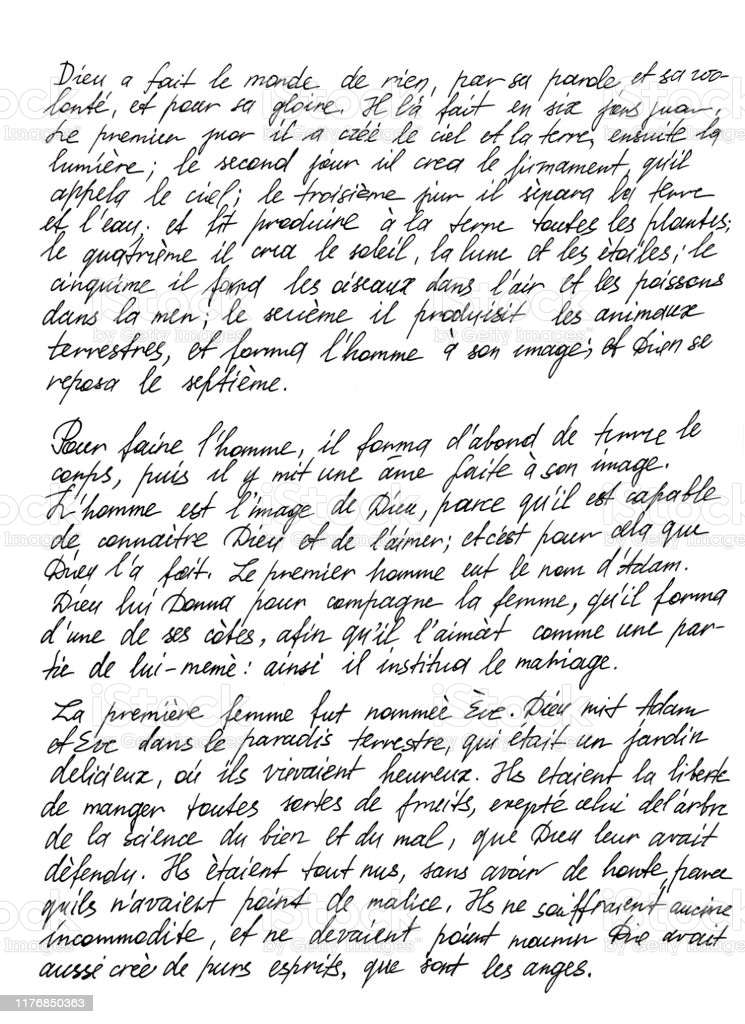 Dieu a fait le monde de rien, par sa parole et sa vo-
lonté, et pour sa gloire. Il l'a fait en six jons
Le premier il a créé le ciel et la terre, ensuite la
lumière; le second jour il crea le firmament, qu'il
appela le ciel; le troisième jour il sipara la terre
et l'eau. et fit produire à la terre toutes les plantes;
le quatrième il crea le soleil, la lune et les ètoiles; le
cinquime il forma les oiseaux dans l'air et les poissons
dans la mer; le il produisit les animaux
terrestres, et forma l'homme à son image; et Dieu se
reposa le septième.
Pour faire l'homme, il forma d'abord de le
corps, puis il y mit une âme faite à son image.
L'homme est l'image de Dieu, parce qu'il est capable
de connaitre Dieu et de l'aimer; et c'est pour cela que
Dieu l'a fait. Le premier homme eut le nom d'Adam.
Dieu lui Donna pour compagne la femme, qu'il forma
d'une de ses còtes, afin qu'il l'aimàt comme une par-
tie de lui-memè: ainsi il institua le mariage.
La première femme fut nommeè Ève. Dieu mit Adam
et Eve dans le paradis terrestre, qui était un jardin
delicieux, où ils vievaient heureux. Ils etaient la liberte
de manger toutes sortes de fruits, celui de l'arbre
de la science du bien et du mal, que Dieu leur avait
dèfendu. Ils ètaient tout nus, sans avoir de honte, parce
qu'ils n'avaient point de malice. Ils ne souffraient aucune
incommodite, et ne devaient point mourir avait
aussi creè de purs esprits, que sont les anges.
iStock
by Getty Images™
1176850363